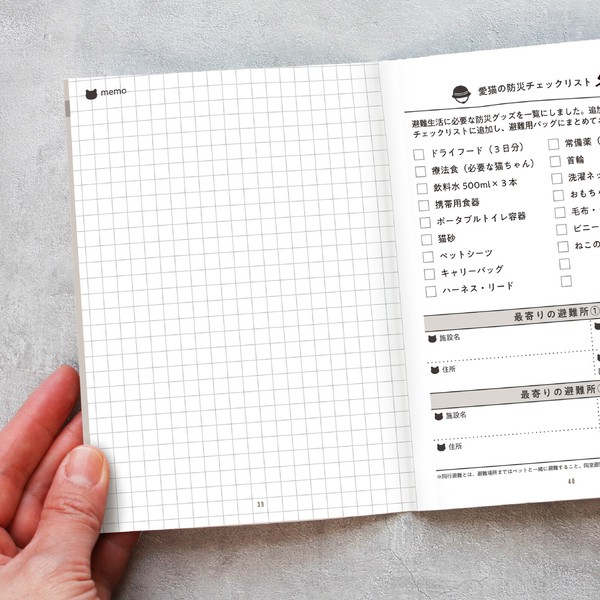 memo
39
愛猫の防災チェックリスト
避難生活に必要な防災グッズを一覧にしました。追加
チェックリストに追加し、避難用バッグにまとめて
ドライフード（3日分）
療法食（必要な猫ちゃん）
飲料水 500ml×3本
携帯用食器
ポータブルトイレ容器
猫砂
ペットシーツ
キャリーバッグ
ハーネス・リード
常備薬（
首輪
洗濯ネッ
おもち
毛布・
ビニー
ねこの
最寄りの避難所①
施設名
住所
最寄りの避難所
施設名
住所
※同行避難とは、避難場所まではペットと一緒に避難すること。同室避
40